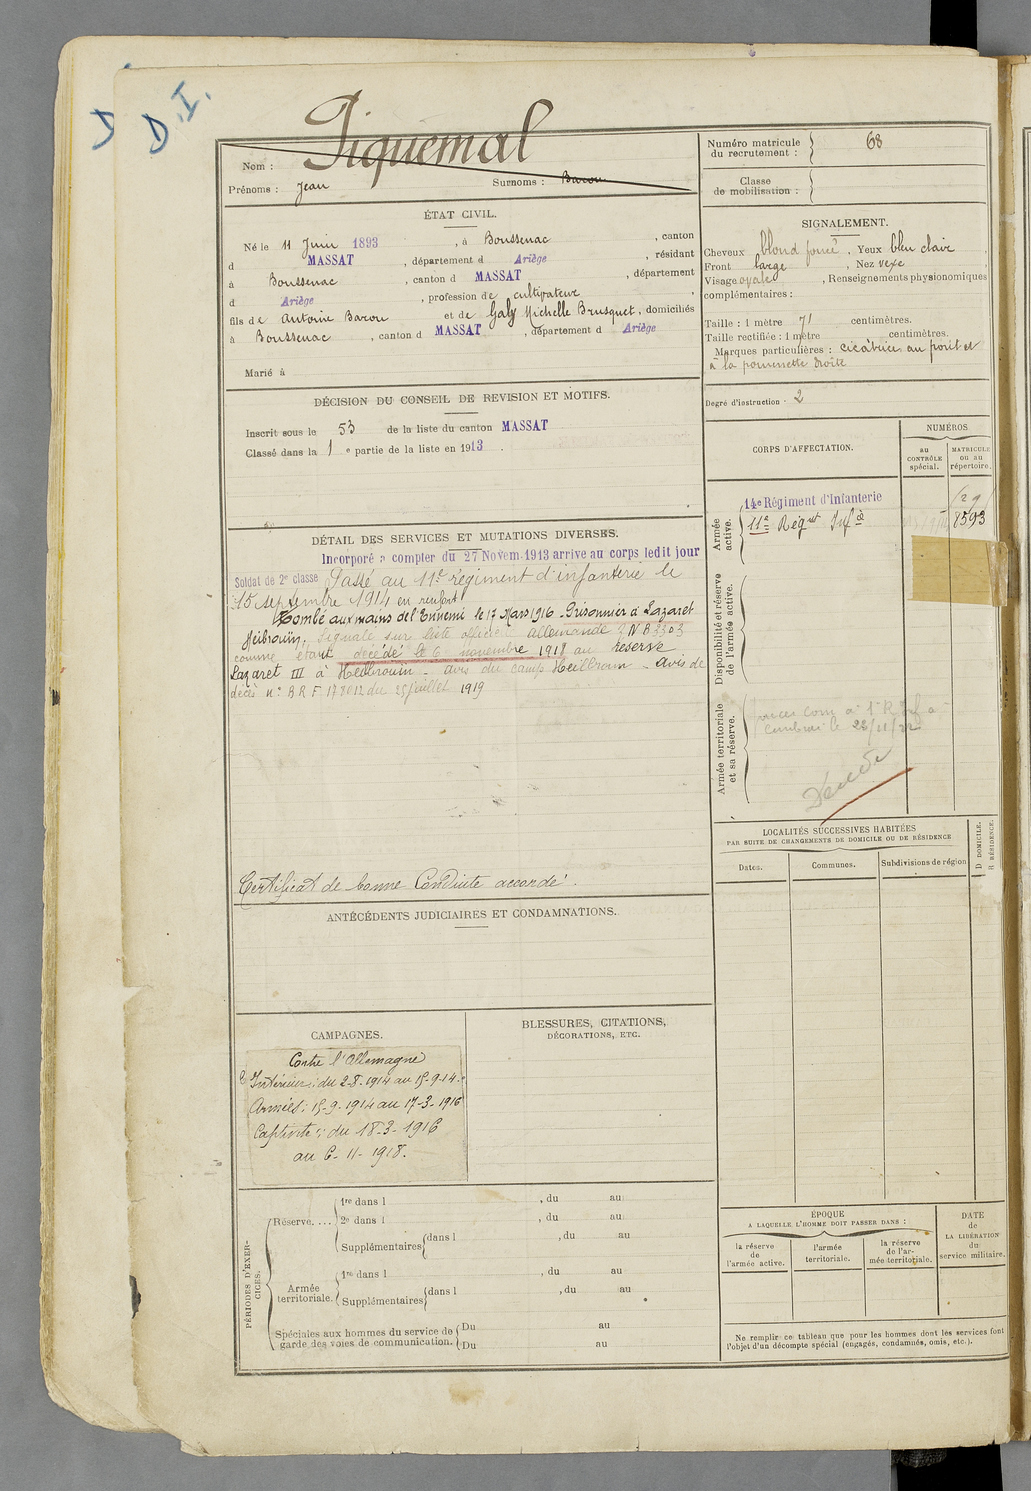 D
D.I.
Piquemal
Nom :
Prénoms : Jean
Surnoms : Barou
ÉTAT CIVIL.
Né le 11 Juin 1893 , à Boussenac , canton
d MASSAT , département d Ariège , résidant
à Boussenac , canton d MASSAT , département
d Ariège , profession de cultivateur ,
fils de Antoine Barou et de Galy Michelle Brusquet , domiciliés
à Boussenac , canton d MASSAT , département d Ariège
Marié à
DÉCISION DU CONSEIL DE REVISION ET MOTIFS.
Inscrit sous le 53 de la liste du canton MASSAT
Classé dans la 1 e partie de la liste en 1913 .
DÉTAIL DES SERVICES ET MUTATIONS DIVERSES.
Incorporé à compter du 27 Novem. 1913 arrive au corps ledit jour
Soldat de 2e classe Passé au 11e régiment d'infanterie le
15 septembre 1914 en renfort
Tombé aux mains de l'Ennemi le 17 Mars 1916 - Prisonnier à Lazaret
Heilbronn. Signalé sur liste officielle allemande
comme étant décédé le 6 novembre 1918 au reserve
Lazaret III à Heilbronn - avis du camp Heilbronn - Avis de
décès n° BRF 178012 du 25 juillet 1919
Certificat de bonne Conduite accordé.
ANTÉCÉDENTS JUDICIAIRES ET CONDAMNATIONS.
CAMPAGNES.
Contre l'Allemagne
Intérieur : du 2-8-1914 au 15-9-14.
Armées : 15-9-1914 au 17-3-1916
Captivité : du 18-3-1916
au 6-11-1918.
BLESSURES, CITATIONS,
DÉCORATIONS, ETC.
PÉRIODES D'EXERCICES.
Réserve. ...
1re dans l , du au
2e dans l , du au
Supplémentaires dans l , du au
Armée
territoriale.
1re dans l , du au
Supplémentaires dans l , du au
Spéciales aux hommes du service de
garde des voies de communication.
Du au
Du au
Numéro matricule
du recrutement : 68
Classe
de mobilisation :
SIGNALEMENT.
Cheveux blond foncé . Yeux bleu clair ,
Front large , Nez vexe ,
Visage ovale , Renseignements physionomiques
complémentaires :
Taille : 1 mètre 71 centimètres.
Taille rectifiée : 1 mètre centimètres.
Marques particulières : cicatrices au front et
à la pommette droite
Degré d'instruction · 2
CORPS D'AFFECTATION.
NUMÉROS
au
CONTRÔLE
spécial.
MATRICULE
ou au
répertoire.
Armée
active.
14e Régiment d'Infanterie
11e Régnt Infie 8593
Disponibilité et réserve
de l'armée active.
Armée territoriale
et sa réserve.
Cambrai le 22/11/22
Décédé
LOCALITÉS SUCCESSIVES HABITÉES
PAR SUITE DE CHANGEMENTS DE DOMICILE OU DE RÉSIDENCE
Dates.
Communes.
Subdivisions de région
D DOMICILE.
R RÉSIDENCE.
ÉPOQUE
A LAQUELLE L'HOMME DOIT PASSER DANS :
DATE
de
LA LIBÉRATION
du
service militaire.
la réserve
de
l'armée active.
l'armée
territoriale.
la réserve
de l'ar-
mée territoriale.
Ne remplir ce tableau que pour les hommes dont les services font
l'objet d'un décompte spécial (engagés, condamnés, omis, etc.).